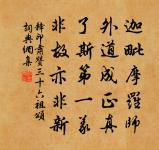 迦毗摩羅師
外道成正真
了斯第一義
非故亦非新
釋印肅贊三十六祖頌
詞典網集